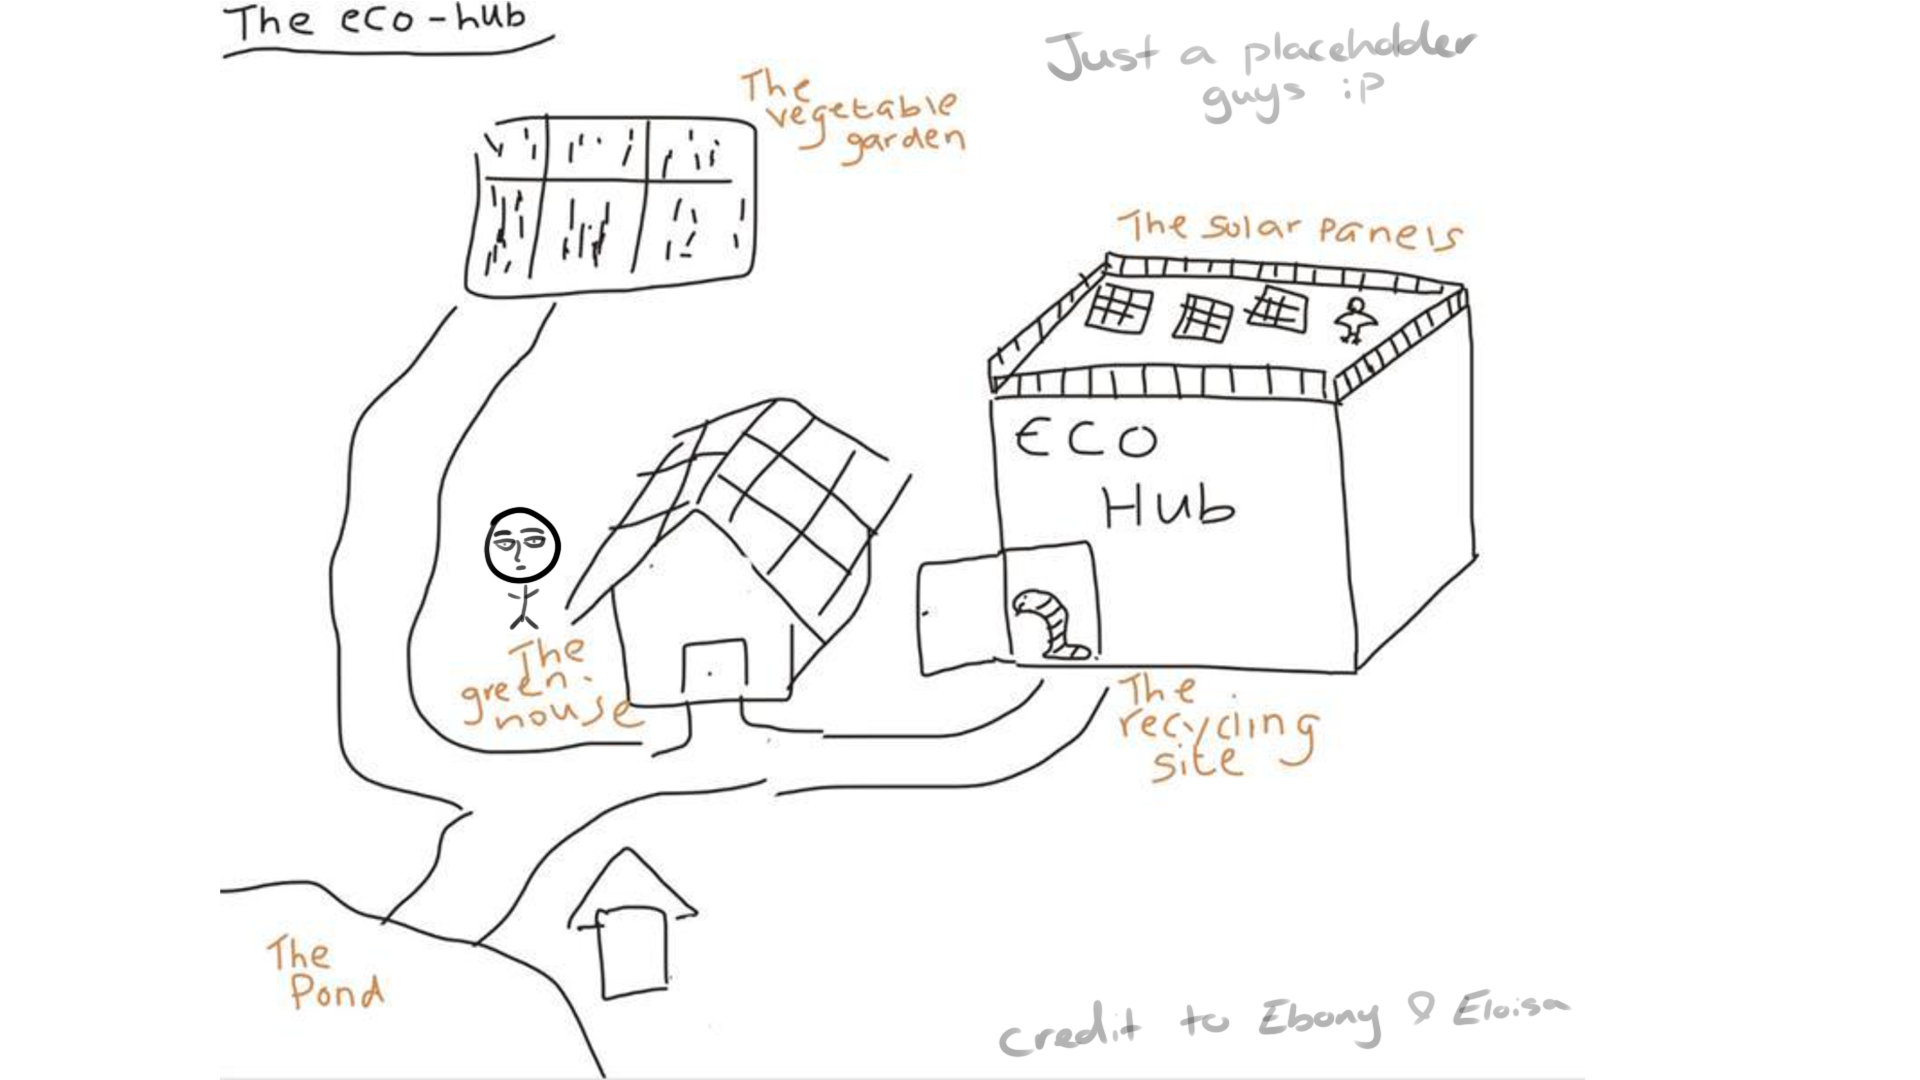 The eco-hub
Just a placeholder
guys :P
The
vegetable
garden
The solar panels
ECO
Hub
The
green-
house
The
recycling
site
The
Pond
credit to Ebony & Eloisa